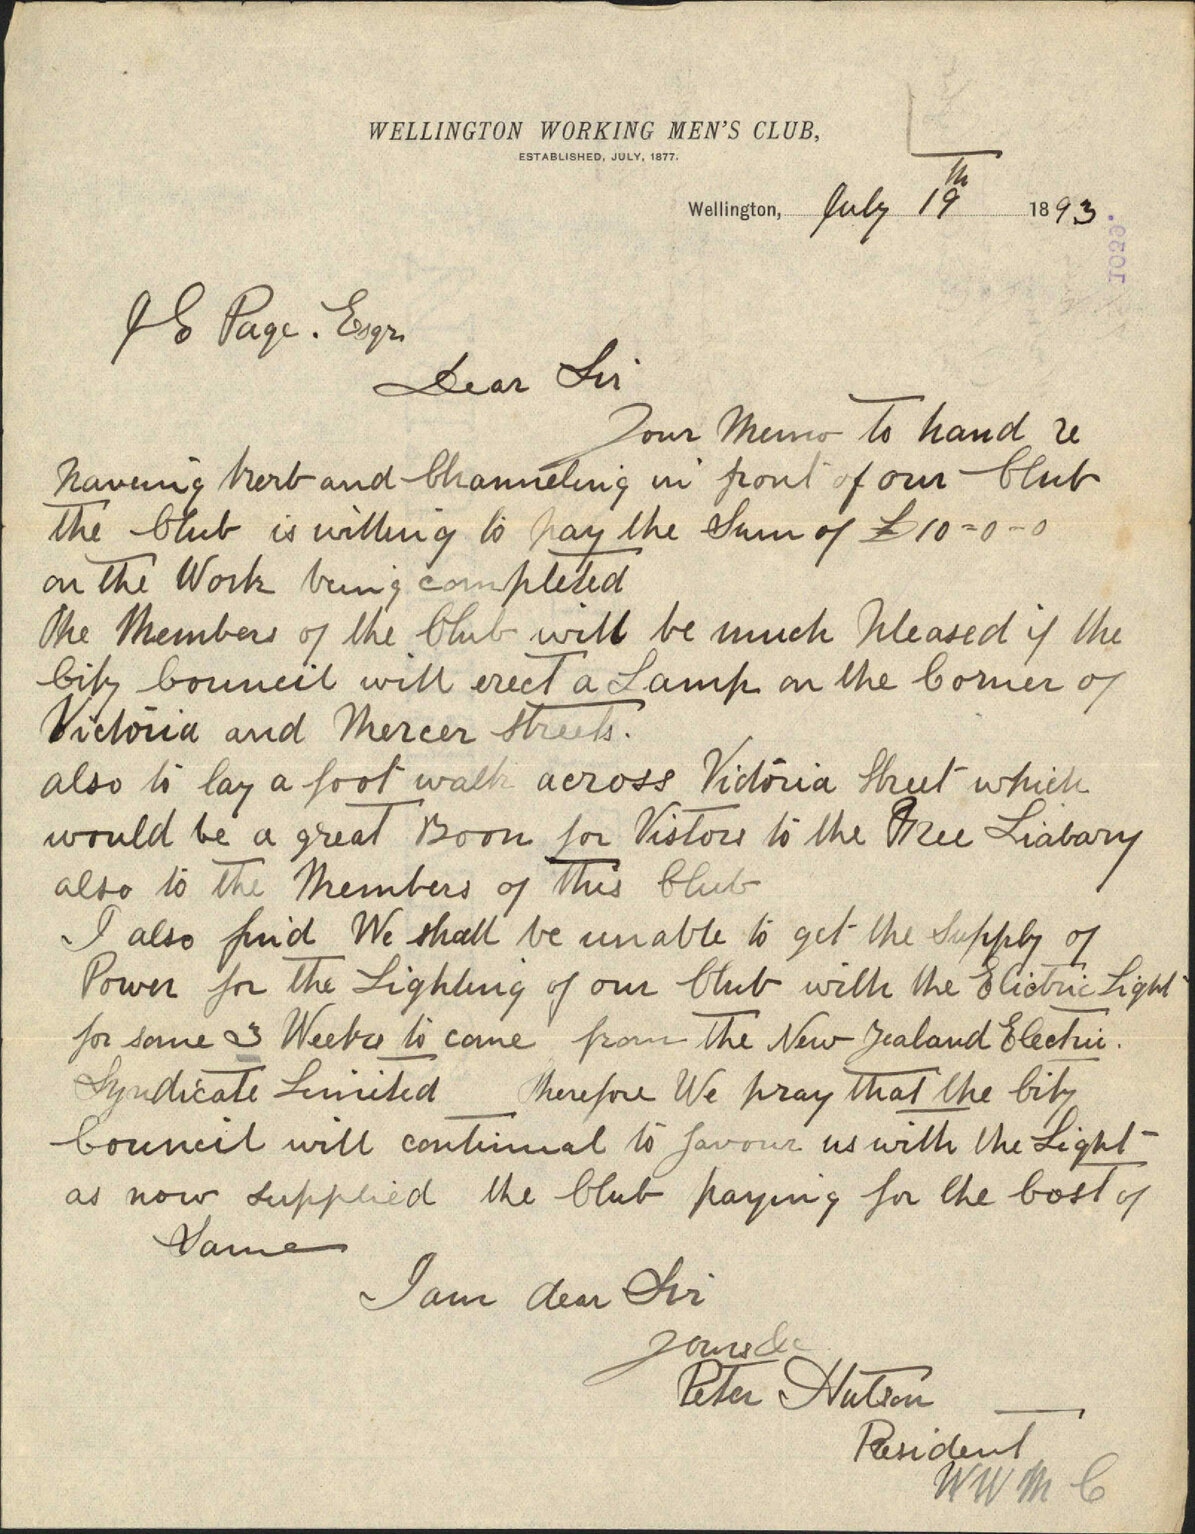 WELLINGTON WORKING MEN'S CLUB,
ESTABLISHED, JULY, 1877.
Wellington, July 19th 1893
J E Page. Esqr.
Dear Sir
Your Memo to hand re
haveing Kerb and Channeling in front of our Club
the Club is willing to pay the Sum of £10=0-0
on the Work being completed
The Members of the Club will be much Pleased if the
City Council will erect a Lamp on the Corner of
Victoria and Mercer Streets.
also to lay a foot walk across Victoria Street which
would be a great Boon for Vistors to the Free Liabary
also to the Members of this Club
I also find We shall be unable to get the Supply of
Power for the Lighting of our Club with the Elictric Light
for some 3 Weeks to come from the New Zealand Electric.
Syndicate Limited Therefore We pray that the City
Council will continual to favour us with the Light
as now supplied the Club paying for the Cost of
Same
I am dear Sir
Yours &c
Peter Hutson
President
W W M C